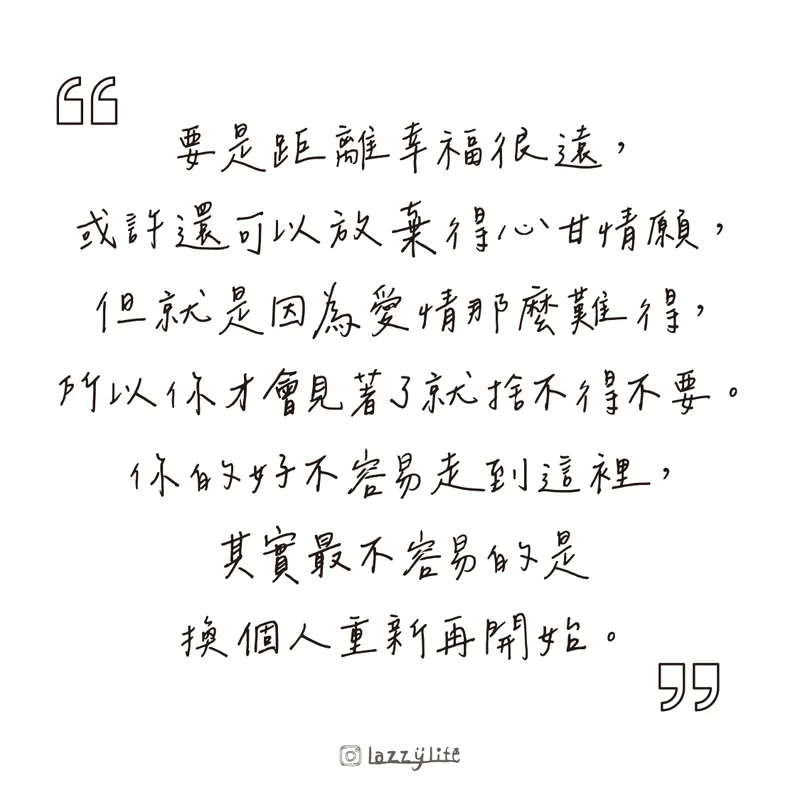 要是距離幸福很遠，
或許還可以放棄得心甘情願，
但就是因為愛情那麼難得，
所以你才會見著了就捨不得不要。
你的好不容易走到這裡，
其實最不容易的是
換個人重新再開始。
lazzylife